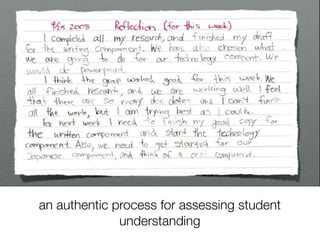 9/19 2008 Reflection (for this week)
I completed all my research, and finished my draft
for the writing component. We have also chosen what
we are going to do for our technology compent. We
would do powerpoint.
I think the group worked good for this week. We
all finished research, and we are working well. I feel
that there are so many due dates and I can't finish
all the work, but I am trying best as I could.
For next week I need to finish my good copy for
the written component and start the technology
component. Also, we need to get started for our
Japanese component, and think of a oral component.
an authentic process for assessing student
understanding